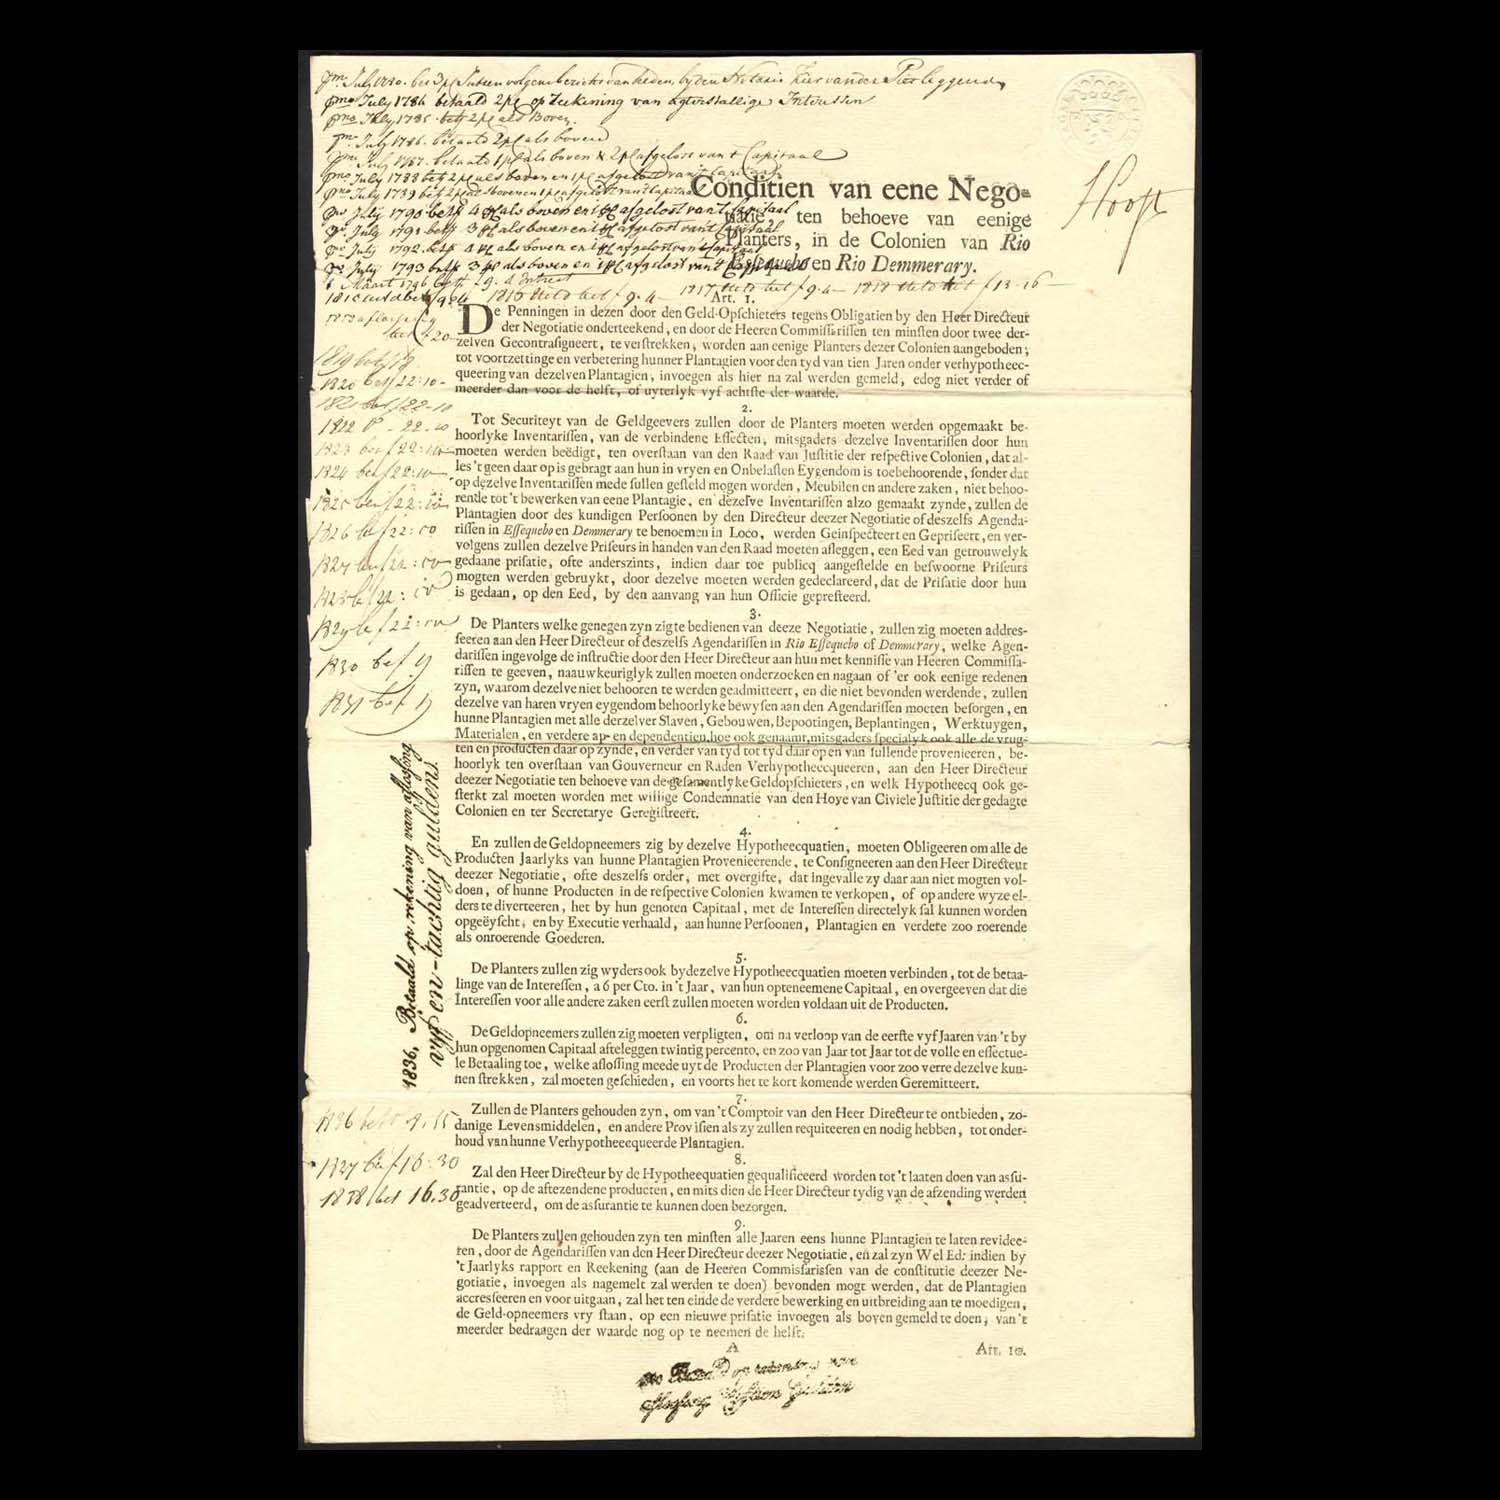 July 1786 betaald 2 pc op Reekening van agterstallige Intressen
July 1785 bet 2 pc als Boven
July 1786 betaald 2 pc als boven
July 1787 betaald 1 pc als boven & 2 pc afgelost van t Capitaal
July 1788 bet 2 pc als boven en 1 pc afgelost van't Capitaal
July 1789 bet 2 pc als boven en 1 pc afgelost van't Capitaal
July 1790 bet 4 pc als boven en 1 pc afgelost van't Capitaal
July 1791 bet 3 pc als boven en 1 pc afgelost van't Capitaal
July 1792 bet 4 pc als boven en 1 pc afgelost van't Capitaal
July 1793 bet 3 pc als boven en 1 pc afgelost van't Capitaal
Hooft
Conditien van eene Nego-
tiatie, ten behoeve van eenige
Planters, in de Colonien van Rio
Essequebo en Rio Demmerary.
Maart 1796
1816 bet f 9.4 — 1817 bet f 9.4 — 1818 bet f 13-16 —
Art. 1.
De Penningen in dezen door den Geld-Opschieters tegens Obligatien by den Heer Directeur
der Negotiatie onderteekend, en door de Heeren Commissarissen ten minsten door twee der-
zelven Gecontrasigneert, te verstrekken, worden aan eenige Planters dezer Colonien aangeboden;
tot voortzettinge en verbetering hunner Plantagien voor den tyd van tien Jaren onder verhypothecc-
queering van dezelven Plantagien, invoegen als hier na zal werden gemeld, edog niet verder of
meerder dan voor de helft, of uyterlyk vyf achtste der waarde.
2.
Tot Securiteyt van de Geldgeevers zullen door de Planters moeten werden opgemaakt be-
hoorlyke Inventarissen, van de verbindene Effecten, mitsgaders dezelve Inventarissen door hun
moeten werden beëdigt, ten overstaan van den Raad van Justitie der respective Colonien, dat al-
les 't geen daar op is gebragt aan hun in vryen en Onbelasten Eygendom is toebehoorende, sonder dat
op dezelve Inventarissen mede sullen gesteld mogen worden, Meubilen en andere zaken, niet behoo-
rende tot 't bewerken van eene Plantagie, en dezelve Inventarissen alzo gemaakt zynde, zullen de
Plantagien door des kundigen Persoonen by den Directeur deezer Negotiatie of deszelfs Agenda-
rissen in Essequebo en Demmerary te benoemen in Loco, werden Geinspecteert en Gepriseert, en ver-
volgens zullen dezelve Priseurs in handen van den Raad moeten afleggen, een Eed van getrouwelyk
gedaane prisatie, ofte anderszints, indien daar toe publicq aangestelde en beswoorne Priseurs
mogten werden gebruykt, door dezelve moeten werden gedeclareerd, dat de Prisatie door hun
is gedaan, op den Eed, by den aanvang van hun Officie gepresteerd.
3.
De Planters welke genegen zyn zig te bedienen van deeze Negotiatie, zullen zig moeten addres-
seeren aan den Heer Directeur of deszelfs Agendarissen in Rio Essequebo of Demmerary, welke Agen-
darissen ingevolge de instructie door den Heer Directeur aan hun met kennisse van Heeren Commissa-
rissen te geeven, naauwkeuriglyk zullen moeten onderzoeken en nagaan of 'er ook eenige redenen
zyn, waarom dezelve niet behooren te werden geadmitteert, en die niet bevonden werdende, zullen
dezelve van haren vryen eygendom behoorlyke bewysen aan den Agendarissen moeten besorgen, en
hunne Plantagien met alle derzelver Slaven, Gebouwen, Bepootingen, Beplantingen, Werktuygen,
Materialen, en verdere ap- en dependentien, hoe ook genaamt, mitsgaders specialyk ook alle de vrug-
ten en producten daar op zynde, en verder van tyd tot tyd daar op en van sullende provenieeren, be-
hoorlyk ten overstaan van Gouverneur en Raden Verhypotheecqueeren, aan den Heer Directeur
deezer Negotiatie ten behoeve van de gesamentlyke Geldopschieters, en welk Hypotheecq ook ge-
sterkt zal moeten worden met willige Condemnatie van den Hove van Civiele Justitie der gedagte
Colonien en ter Secretarye Geregistreert.
4.
En zullen de Geldopneemers zig by dezelve Hypotheecquatien, moeten Obligeeren om alle de
Producten Jaarlyks van hunne Plantagien Provenieerende, te Consigneeren aan den Heer Directeur
deezer Negotiatie, ofte deszelfs order, met overgifte, dat ingevalle zy daar aan niet mogten vol-
doen, of hunne Producten in de respective Colonien kwamen te verkopen, of op andere wyze el-
ders te diverteeren, het by hun genoten Capitaal, met de Interessen directelyk sal kunnen worden
opgeëyscht, en by Executie verhaald, aan hunne Persoonen, Plantagien en verdere zoo roerende
als onroerende Goederen.
5.
De Planters zullen zig wyders ook by dezelve Hypotheecquatien moeten verbinden, tot de betaa-
linge van de Interessen, a 6 per Cto. in 't Jaar, van hun opteneemene Capitaal, en overgeeven dat die
Interessen voor alle andere zaken eerst zullen moeten worden voldaan uit de Producten.
6.
De Geldopneemers zullen zig moeten verpligten, om na verloop van de eerste vyf Jaaren van 't by
hun opgenomen Capitaal afteleggen twintig percento, en zoo van Jaar tot Jaar tot de volle en effectue-
le Betaaling toe, welke aflossing meede uyt de Producten der Plantagien voor zoo verre dezelve kun-
nen strekken, zal moeten geschieden, en voorts het te kort komende werden Geremitteert.
7.
Zullen de Planters gehouden zyn, om van 't Comptoir van den Heer Directeur te ontbieden, zo-
danige Levensmiddelen, en andere Provisien als zy zullen requireeren en nodig hebben, tot onder-
houd van hunne Verhypotheecqueerde Plantagien.
8.
Zal den Heer Directeur by de Hypotheequatien gequalificeerd worden tot 't laaten doen van assu-
rantie, op de aftezendene producten, en mits dien de Heer Directeur tydig van de afzending werden
geadverteerd, om de assurantie te kunnen doen bezorgen.
9.
De Planters zullen gehouden zyn ten minsten alle Jaaren eens hunne Plantagien te laten revidee-
ren, door de Agendarissen van den Heer Directeur deezer Negotiatie, en zal zyn Wel Ed: indien by
't Jaarlyks rapport en Reekening (aan de Heeren Commissarissen van de constitutie deezer Ne-
gotiatie, invoegen als nagemelt zal werden te doen) bevonden mogt werden, dat de Plantagien
accresseeren en voor uitgaan, zal het ten einde de verdere bewerking en uitbreiding aan te moedigen,
de Geld-opneemers vry staan, op een nieuwe prisatie invoegen als boven gemeld te doen, van 't
meerder bedraagen der waarde nog op te neemen de helft.
A
Art. 10.
1819 bet f 9
1820 bet f 22:10-
1821 bet f 22-10
1822 - 22-10
1823 bet f 22:10
1824 bet f 22:10
1825 bet f 22:10
1826 bet f 22:10
1827 bet f 22:10
1828 bet f 22:10
1829 bet f 22:10
1830 bet f 9
1831 bet f 9
1836, Betaald op rekening van aflossing
vyf-en-tachtig guldens.
1836 bet f 9.15
1837 bet f 16:30
1838 bet 16.30